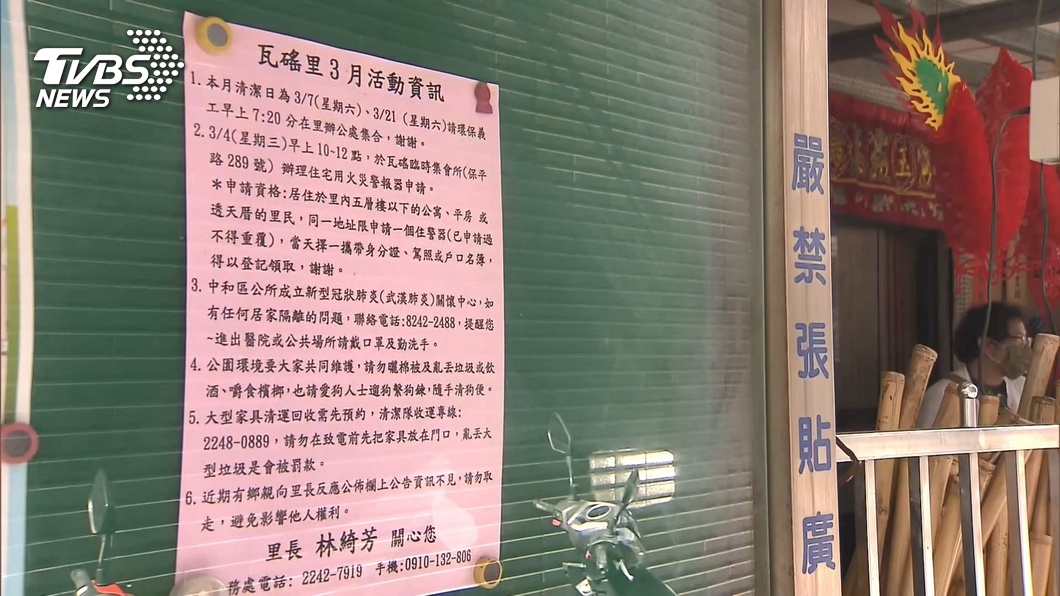 TVBS
NEWS
瓦磘里3月活動資訊
1. 本月清潔日為3/7(星期六)、3/21 (星期六)請環保義
工早上7:20分在里辦公處集合,謝謝。
2. 3/4(星期三)早上10~12點,於瓦磘臨時集會所(保平
路289號) 辦理住宅用火災警報器申請。
＊申請資格:居住於里內五層樓以下的公寓、平房 或
透天厝的里民,同一地址限申請一個住警器(已申請過
不得重覆),當天擇一攜帶身分證、駕照或戶口名簿,
得以登記領取,謝謝。
3. 中和區公所成立新型冠狀肺炎(武漢肺炎)關懷中心,如
有任何居家隔離的問題,聯絡電話:8242-2488,提醒您
~進出醫院或公共場所請戴口罩及勤洗手。
4. 公園環境要大家共同維護,請勿曬棉被及亂丟垃圾或飲
酒、嚼食檳榔,也請愛狗人士遛狗繫狗鍊,隨手清狗便。
5. 大型家具清運回收需先預約,清潔隊收運專線:
2248-0889,請勿在致電前先把家具放在門口,亂丟大
型垃圾是會被罰款。
6. 近期有鄉親向里長反應公佈欄上公告資訊不見,請勿取
走,避免影響他人權利。
里長 林綺芳 關心您
務處電話: 2242-7919 手機:0910-132-806
嚴禁張貼廣